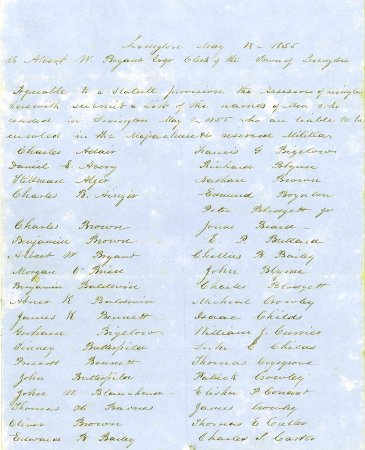 Lexington May 18 - 1855
To Albert W. Bryant Esqr Clerk of the Town of Lexington
Agreeable to a Statute provision the assessors of Lexington
herewith submit a list of the names of Men who
resided in Lexington May 1 1855 who are liable to be
enroled in the Massachusetts reserved Militia
Charles Adair
Francis G. Bigelow
Daniel E Avory
Richard Blynn
William Alger
Nathan Brown
Charles B.
Edmund Boynton
Peter Blodgett Jr
Charles Brown
Jonas Beard
Benjamin Brown
E P. Bullard
Albert W Bryant
Challis B. Bailey
Morgan
John Blynne
Benjamin Baldwin
Charles Blodgett
Abner K Baldwin
Micheal Crowley
James K Bennett
Isaac Childs
Gorham Bigelow
William J. Currier
Sidney Butterfield
Luke C Childs
Prescott Bennett
Thomas Cosgrove
John Butterfield
Patrick Crowley
John W Blanchard
Elisha P Conant
Thomas H Barnes
James Crowley
Oliver Brown
Thomas E Cutler
Edward B Bailey
Charles S. Carter